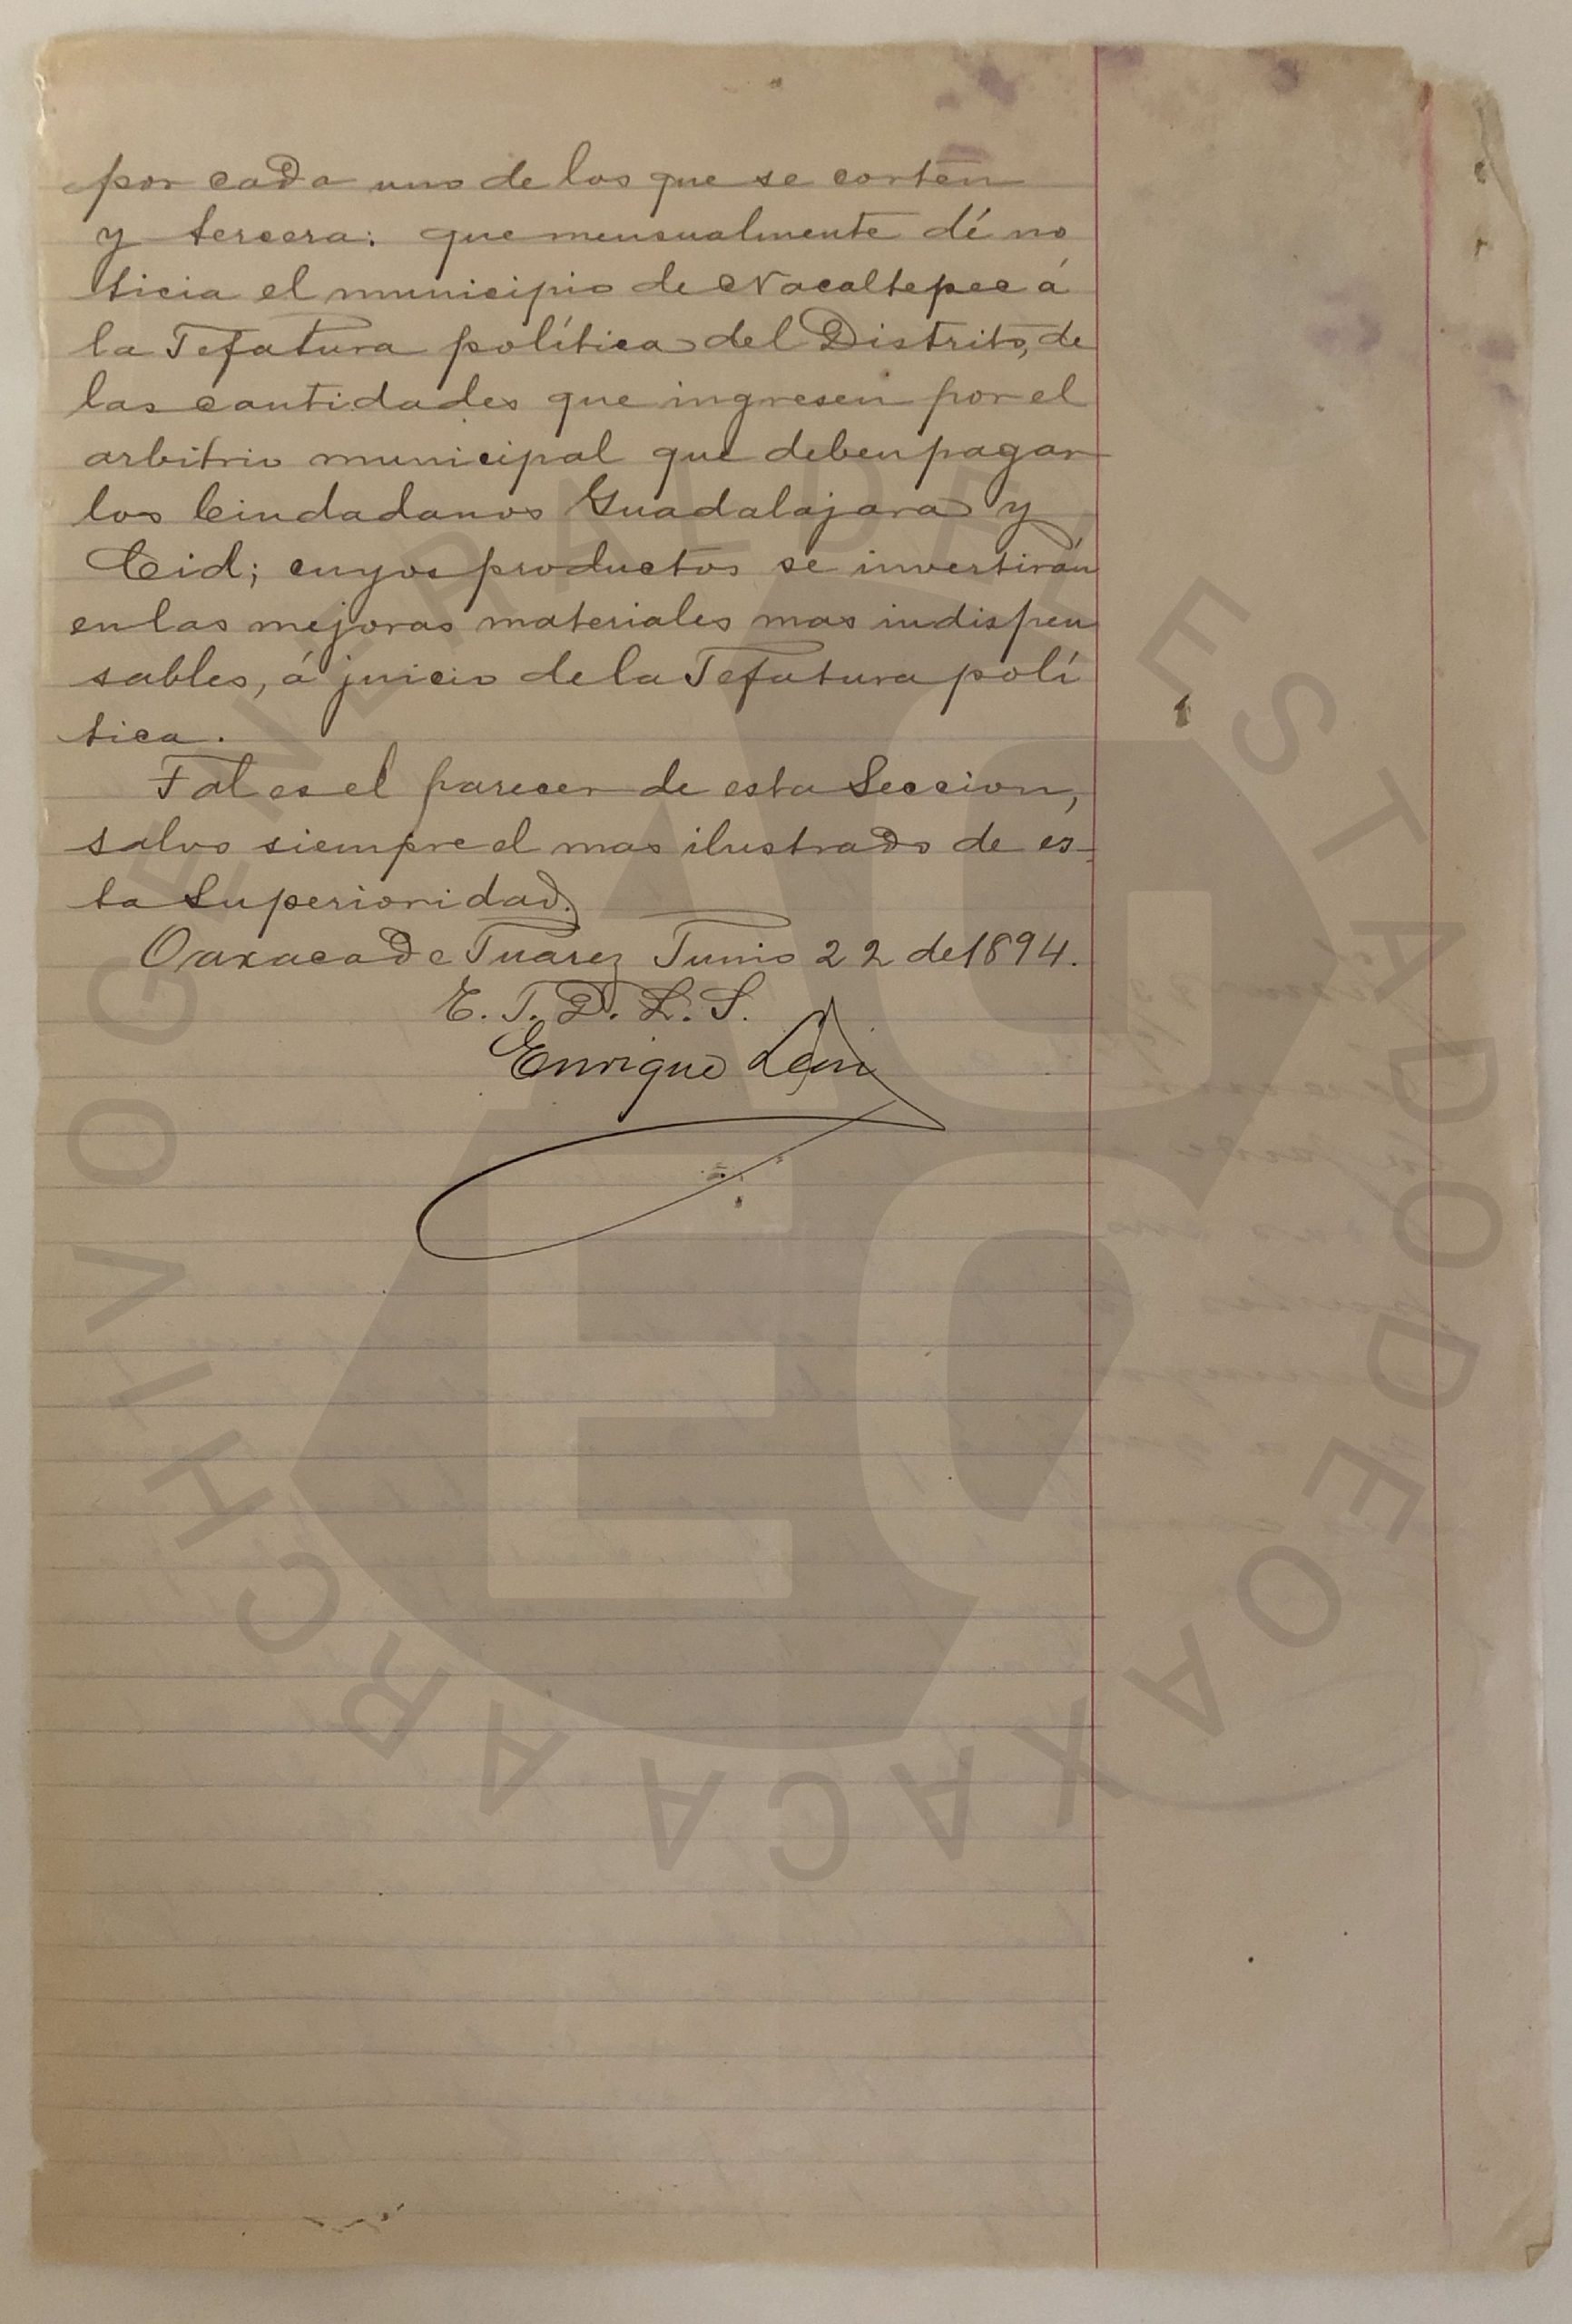 por cada uno de los que se corten
y tercera: que mensualmente dé no
ticia el municipio de Nacaltepec á
la Jefatura política del Distrito, de
las cantidades que ingresen por el
arbitrio municipal que deben pagar
los Ciudadanos Guadalajara y
Cid; cuyos productos se invertirán
en las mejoras materiales mas indispen
sables, á juicio de la Jefatura polí
tica.
Tal es el parecer de esta Seccion,
salvo siempre el mas ilustrado de es-
ta Superioridad.
Oaxaca de Juarez Junio 22 de 1894.
E. J. D. L. S.
Enrique León
ARCHIVO GENERAL DEL ESTADO DE OAXACA